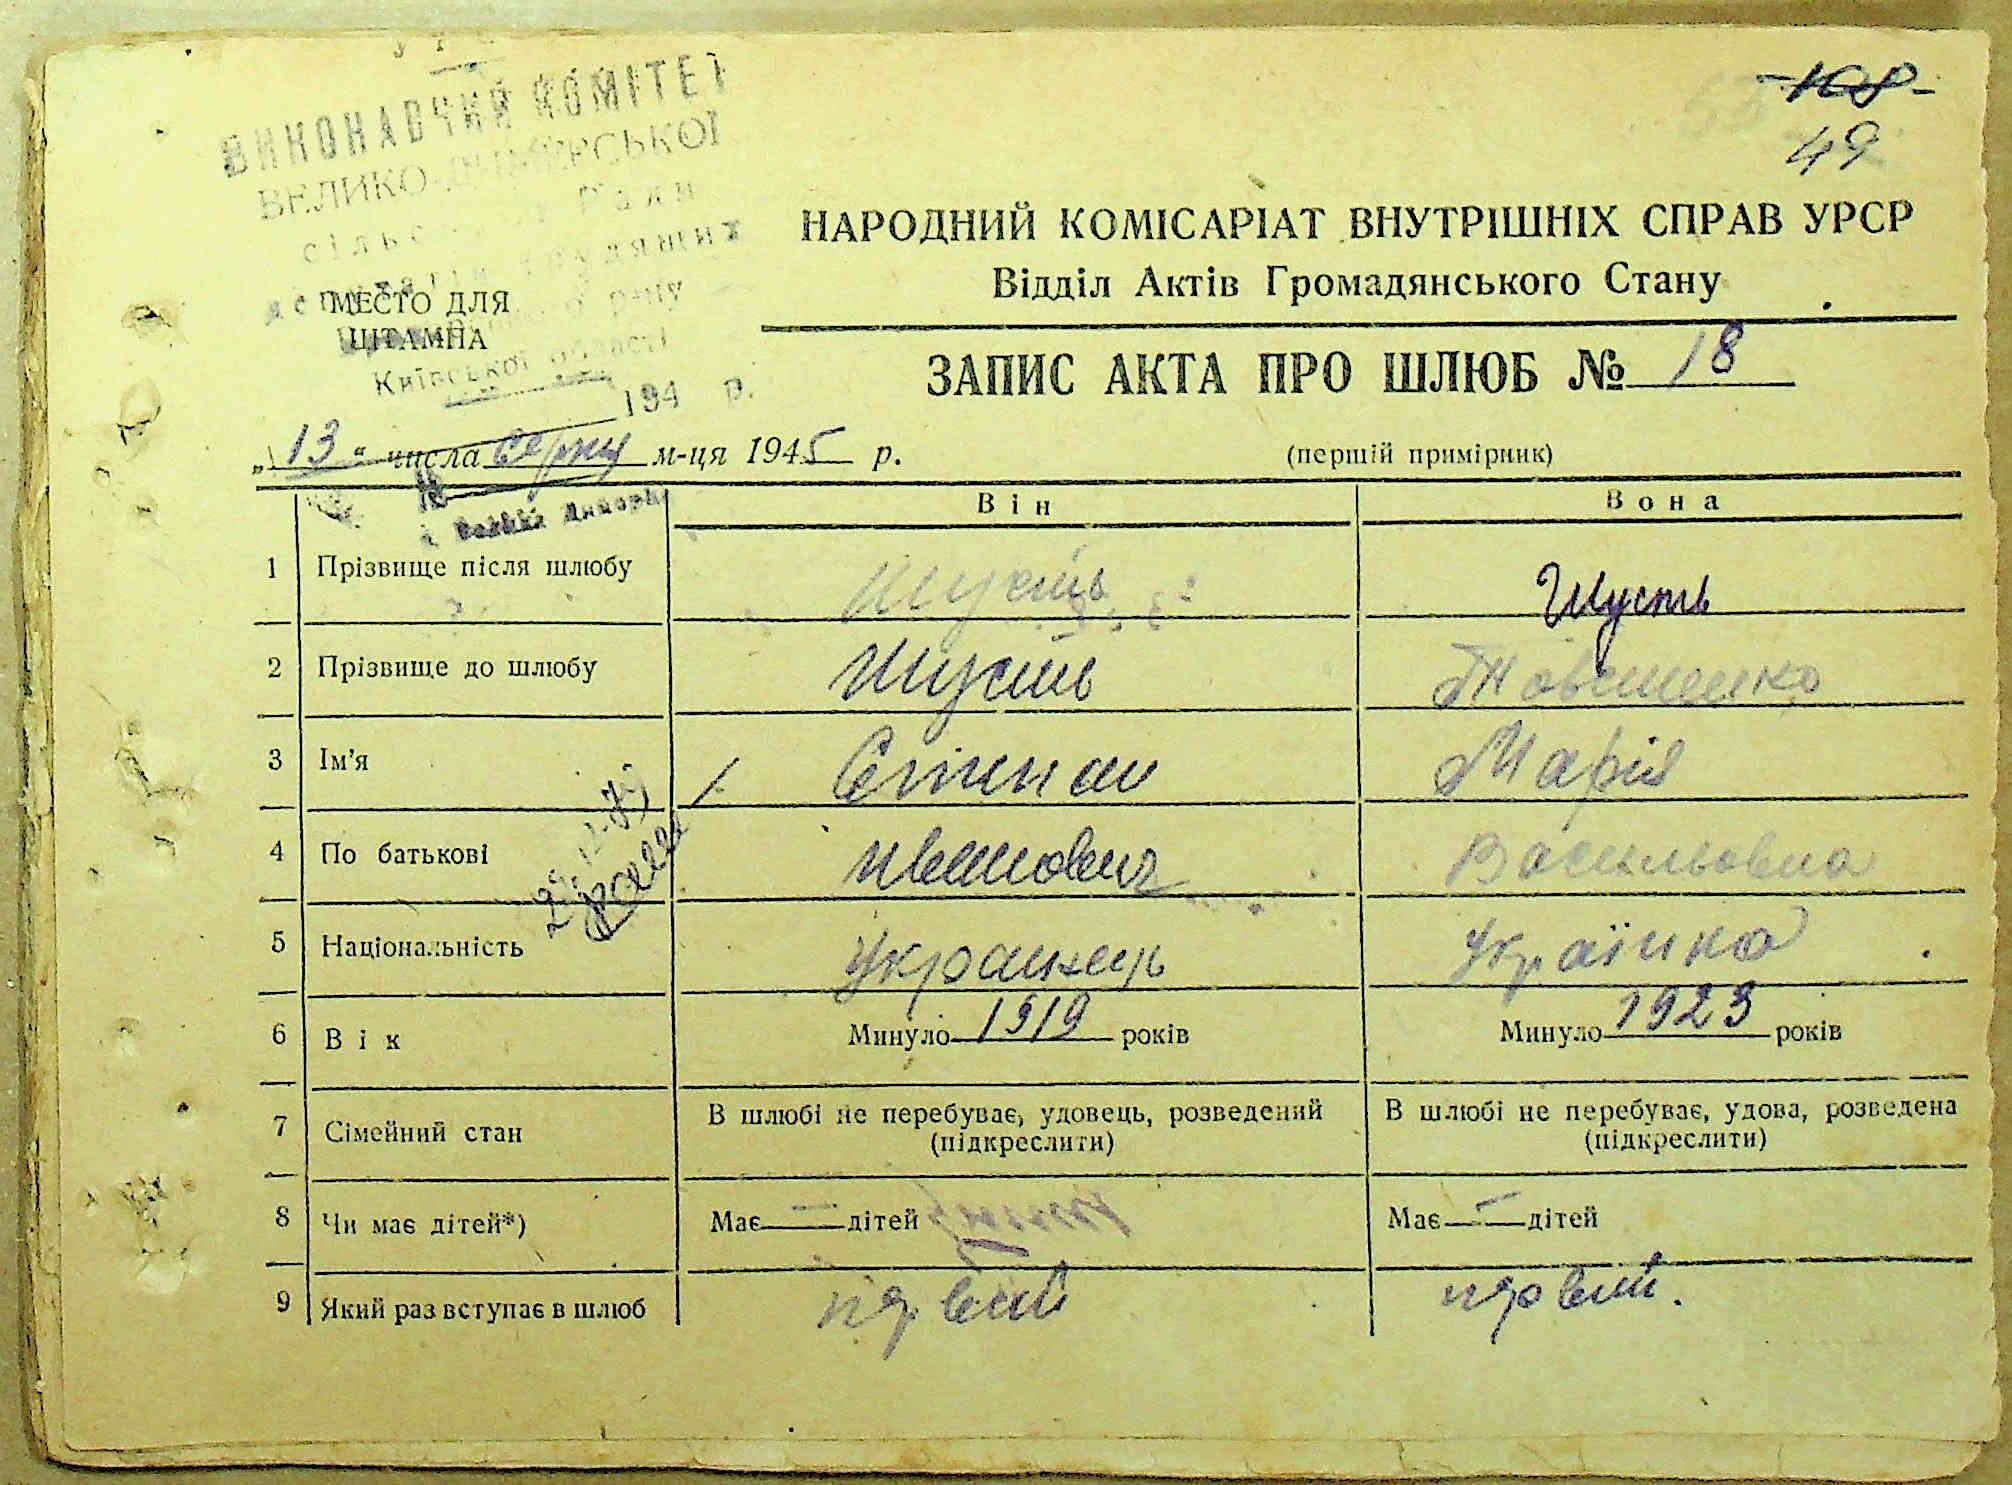 УРСР
ВИКОНАВЧИЙ КОМІТЕТ
ВЕЛИКО-ДИМЕРСЬКОЇ
сільської Ради
депутатів трудящих
р-ну
Київської області
194 р.
№
с. Велика Димерка
-108-
49
НАРОДНИЙ КОМІСАРІАТ ВНУТРІШНІХ СПРАВ УРСР
Відділ Актів Громадянського Стану
МЕСТО ДЛЯ
ШТАМПА
ЗАПИС АКТА ПРО ШЛЮБ № 18
„13“ числа серпня м-ця 1945 р.
(перший примірник)
Він Вона
1 Прізвище після шлюбу Шусть Шусть
2 Прізвище до шлюбу Шусть
3 Ім’я Степан Марія
4 По батькові Іванович Васильовна
5 Національність Українець Українка
6 Вік Минуло 1919 років Минуло 1923 років
7 Сімейний стан В шлюбі не перебуває, удовець, розведений В шлюбі не перебуває, удова, розведена
(підкреслити) (підкреслити)
8 Чи має дітей*) Має — дітей Має — дітей
9 Який раз вступає в шлюб первий первий.